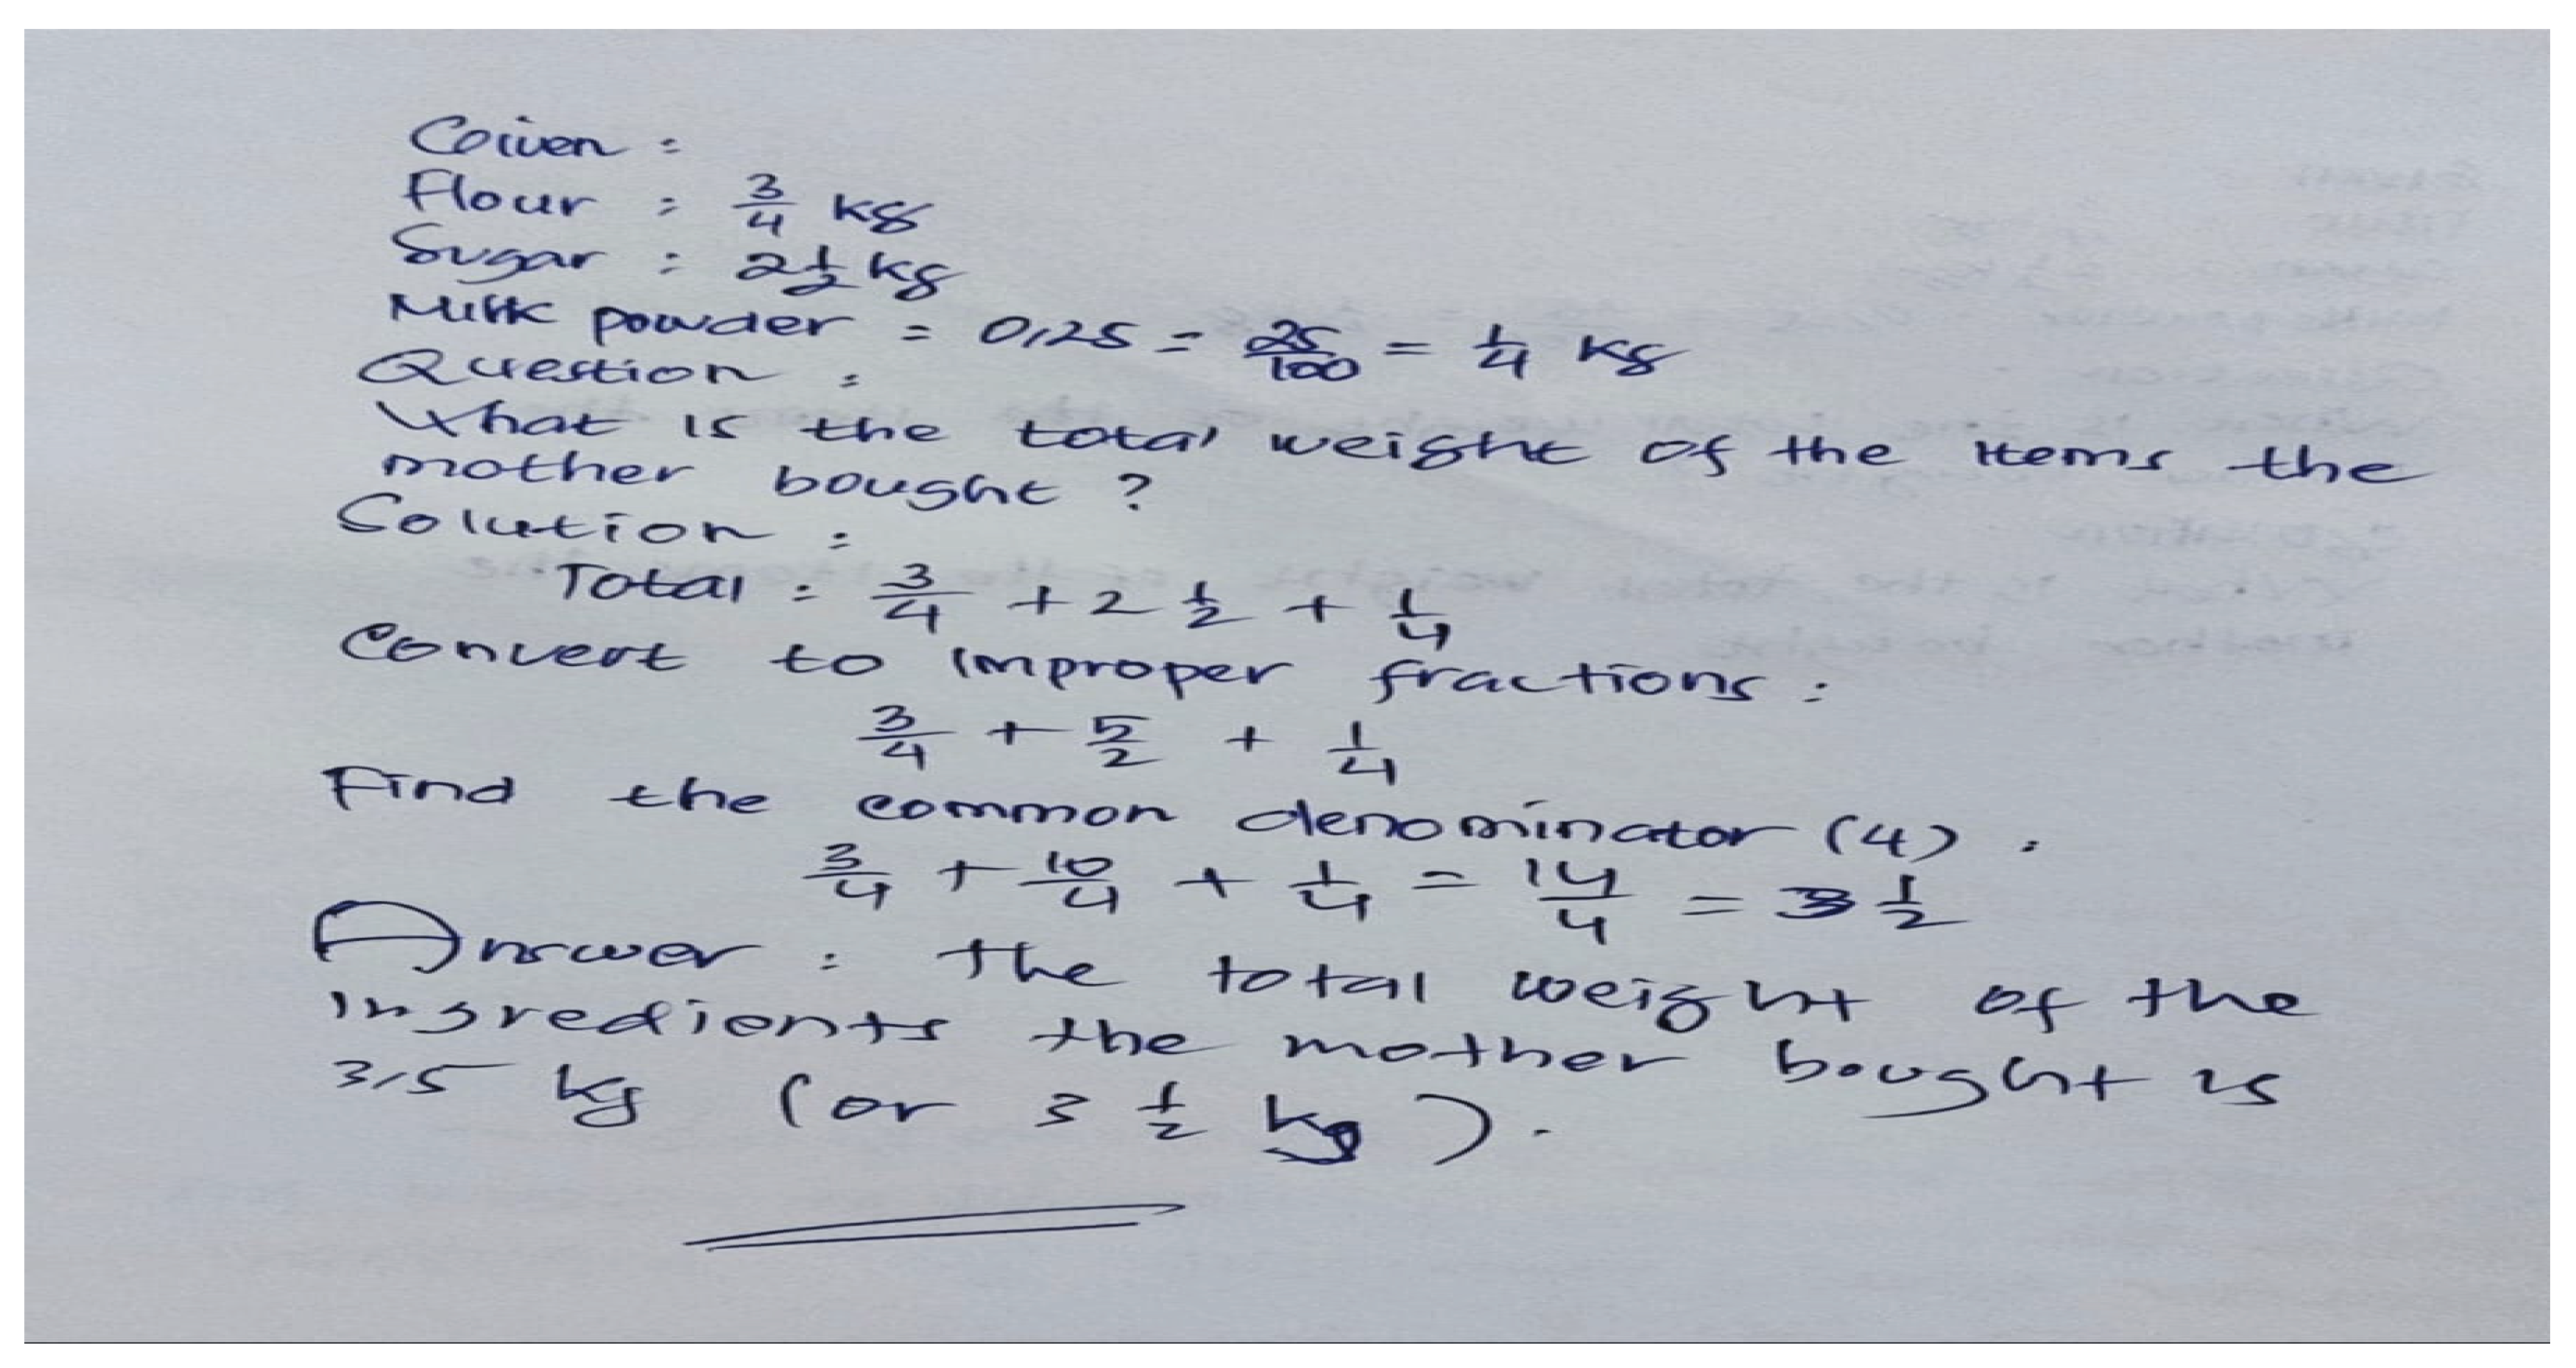 Given :
Flour : 3/4 kg
Sugar : 2 1/2 kg
Milk powder = 0,25 = 25/100 = 1/4 kg
Question :
What is the total weight of the items the
mother bought ?
Solution :
Total : 3/4 + 2 1/2 + 1/4
Convert to improper fractions :
3/4 + 5/2 + 1/4
Find the common denominator (4) .
3/4 + 10/4 + 1/4 = 14/4 = 3 1/2
Answer : the total weight of the
ingredients the mother bought is
3,5 kg (or 3 1/2 kg ) .